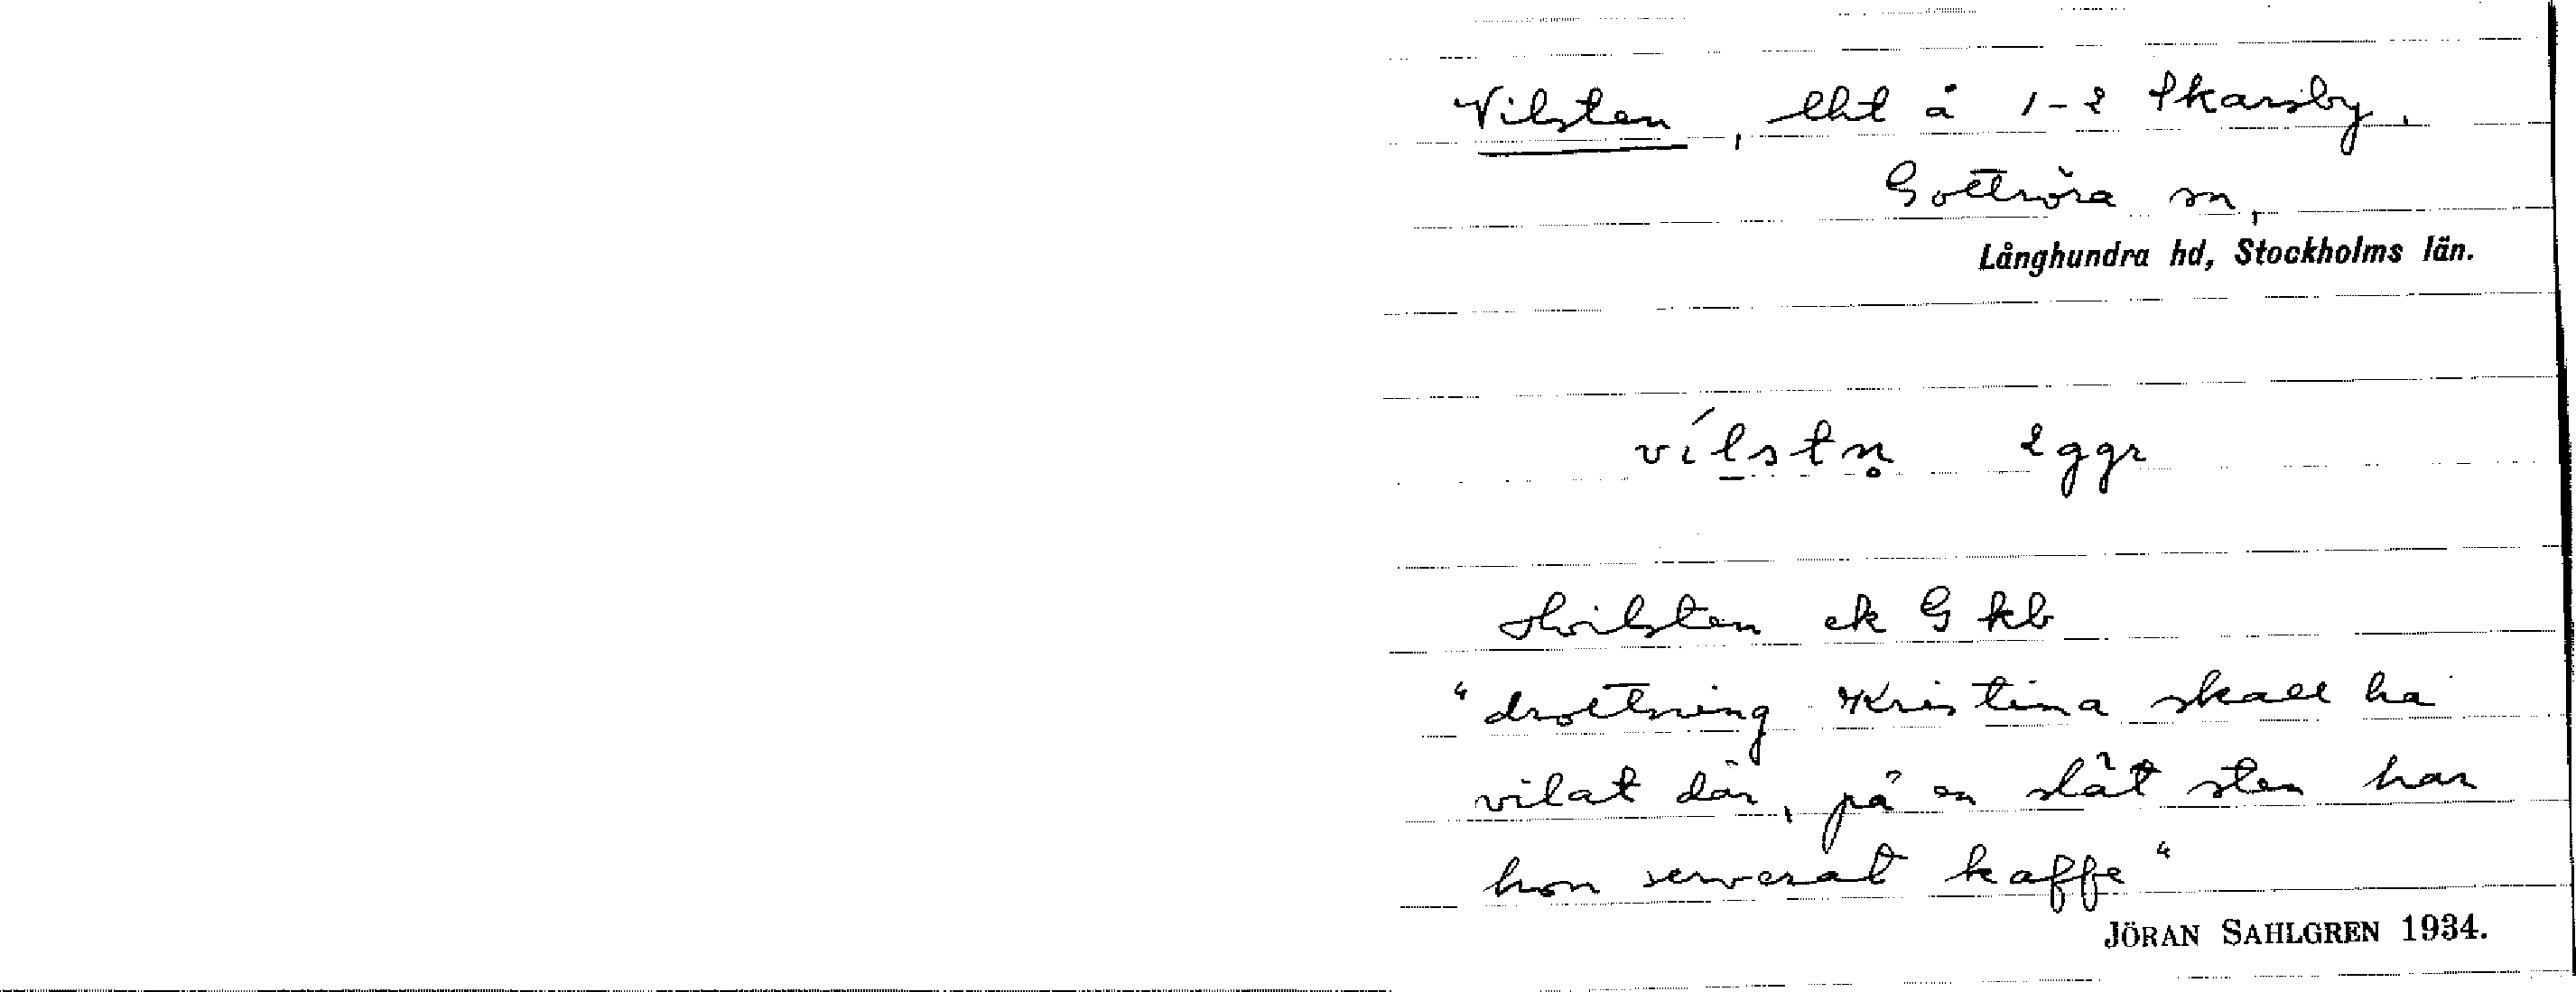 Vilsten, lht å 1-2 Skarsby,
Gottröra sn,
Långhundra hd, Stockholms län.
vílstn̥ 2 ggr
Hvilsten ek G kb
"drottning Kristina skall ha
vilat där, på en slät sten har
hon serverat kaffe"
JÖRAN SAHLGREN 1934.